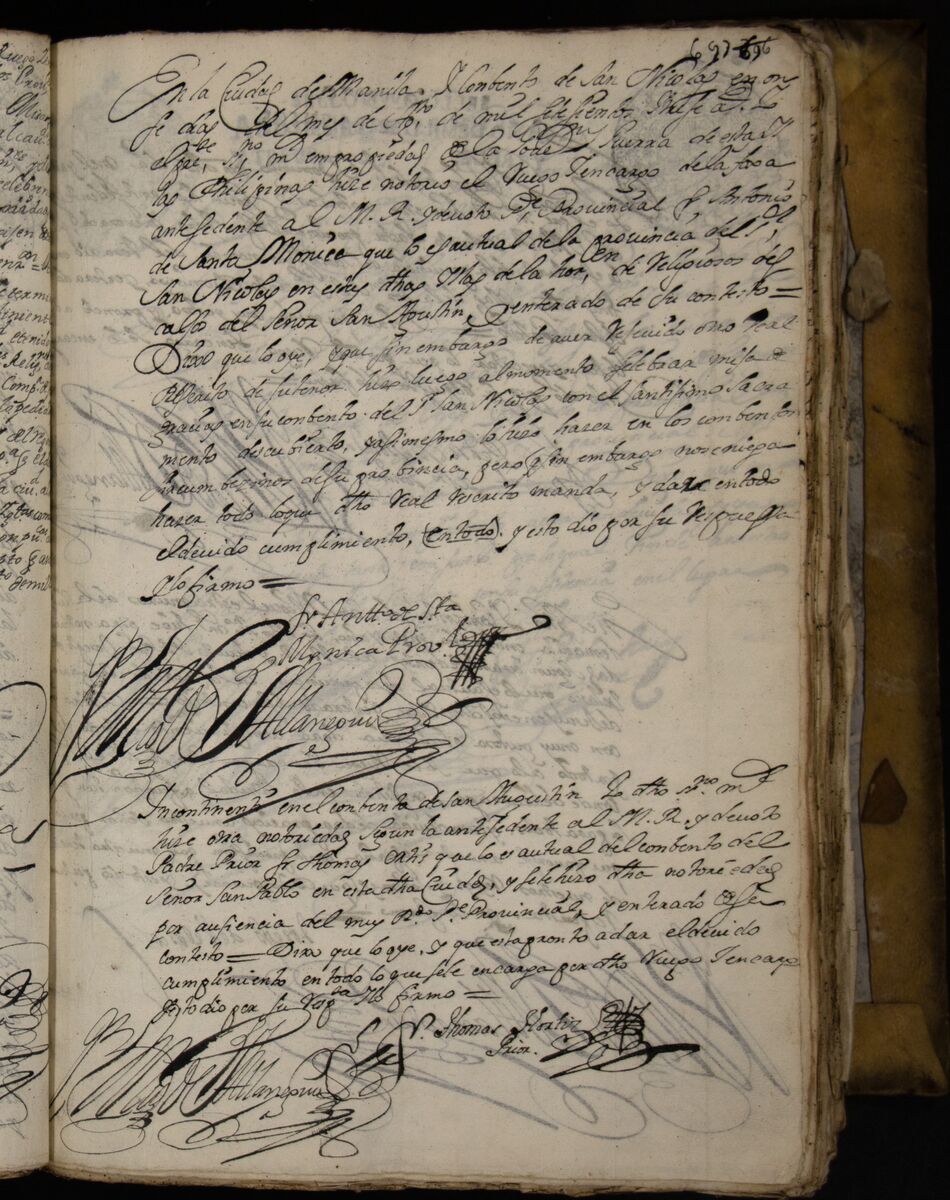 697 696
En la Ciudad de Manila, Y Conbento de San Nicolas en on
se dias del mes de Ag.to de mil setesientos
el pre.te ss.no m.r en propiedad de la Gov.on y Guerra de estas Y
las Philipinas hize notorio el Ruego Y encargo de la foxa
antesedente a el M. R. y devoto P.e Provincial Fr Antonio
de Santa Monica que lo es autual de la provincia del S.r
San Nicolas en estas dhas Yslas de la hor.en de Religiosos des
calso del Señor San Agustin, y enterado de su contesto =
Dixo que lo oye, y que sin embargo de aver Resevido otro Real
Rescrito de su tenor, hizo luego al momento selebrar misa de
gracias en su conbento del S.r San Nicolas con el santisimo sacra
mento descubierto, y asimesmo lo hizo hazer en los conbentos
sircumbesinos de su probincia, pero sin embargo nos eniega
hazer todo lo que dho Real rescrito manda, y dar en todo
el devido cumplimiento, (en todo). y esto dio por su Respuesta
y lo firmo =
fr Antto de Sta
Monica Prov.l
Incontinenti en el conbento de San Augustin Yo dho ss.no m.r
hize otra notoriedad segun la antesedente al M. R. y devoto
Padre Prior Fr Thomas Ortis que lo es autual del conbento del
Señor San Pablo en esta dha Ciudad, y se le hizo dha notoriedad
por ausiencia del muy R.do P.e Provincial, y enterado de su
contesto = Dixo que lo oye, y que esta pronto a dar el devido
cumplimiento en todo lo que se le encarga por dho Ruego Y encargo
Esto dio por su Resp.ta Y lo firmo =
fr. Thomas Hortiz
Prior.